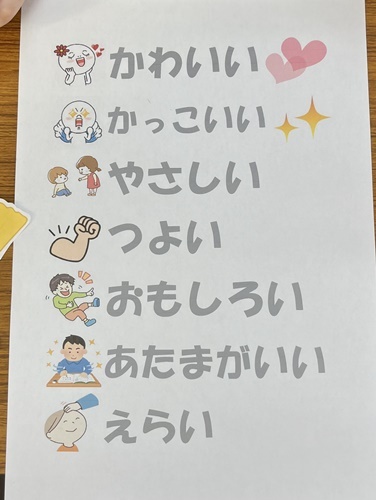 かわいい
かっこいい
やさしい
つよい
おもしろい
あたまがいい
えらい